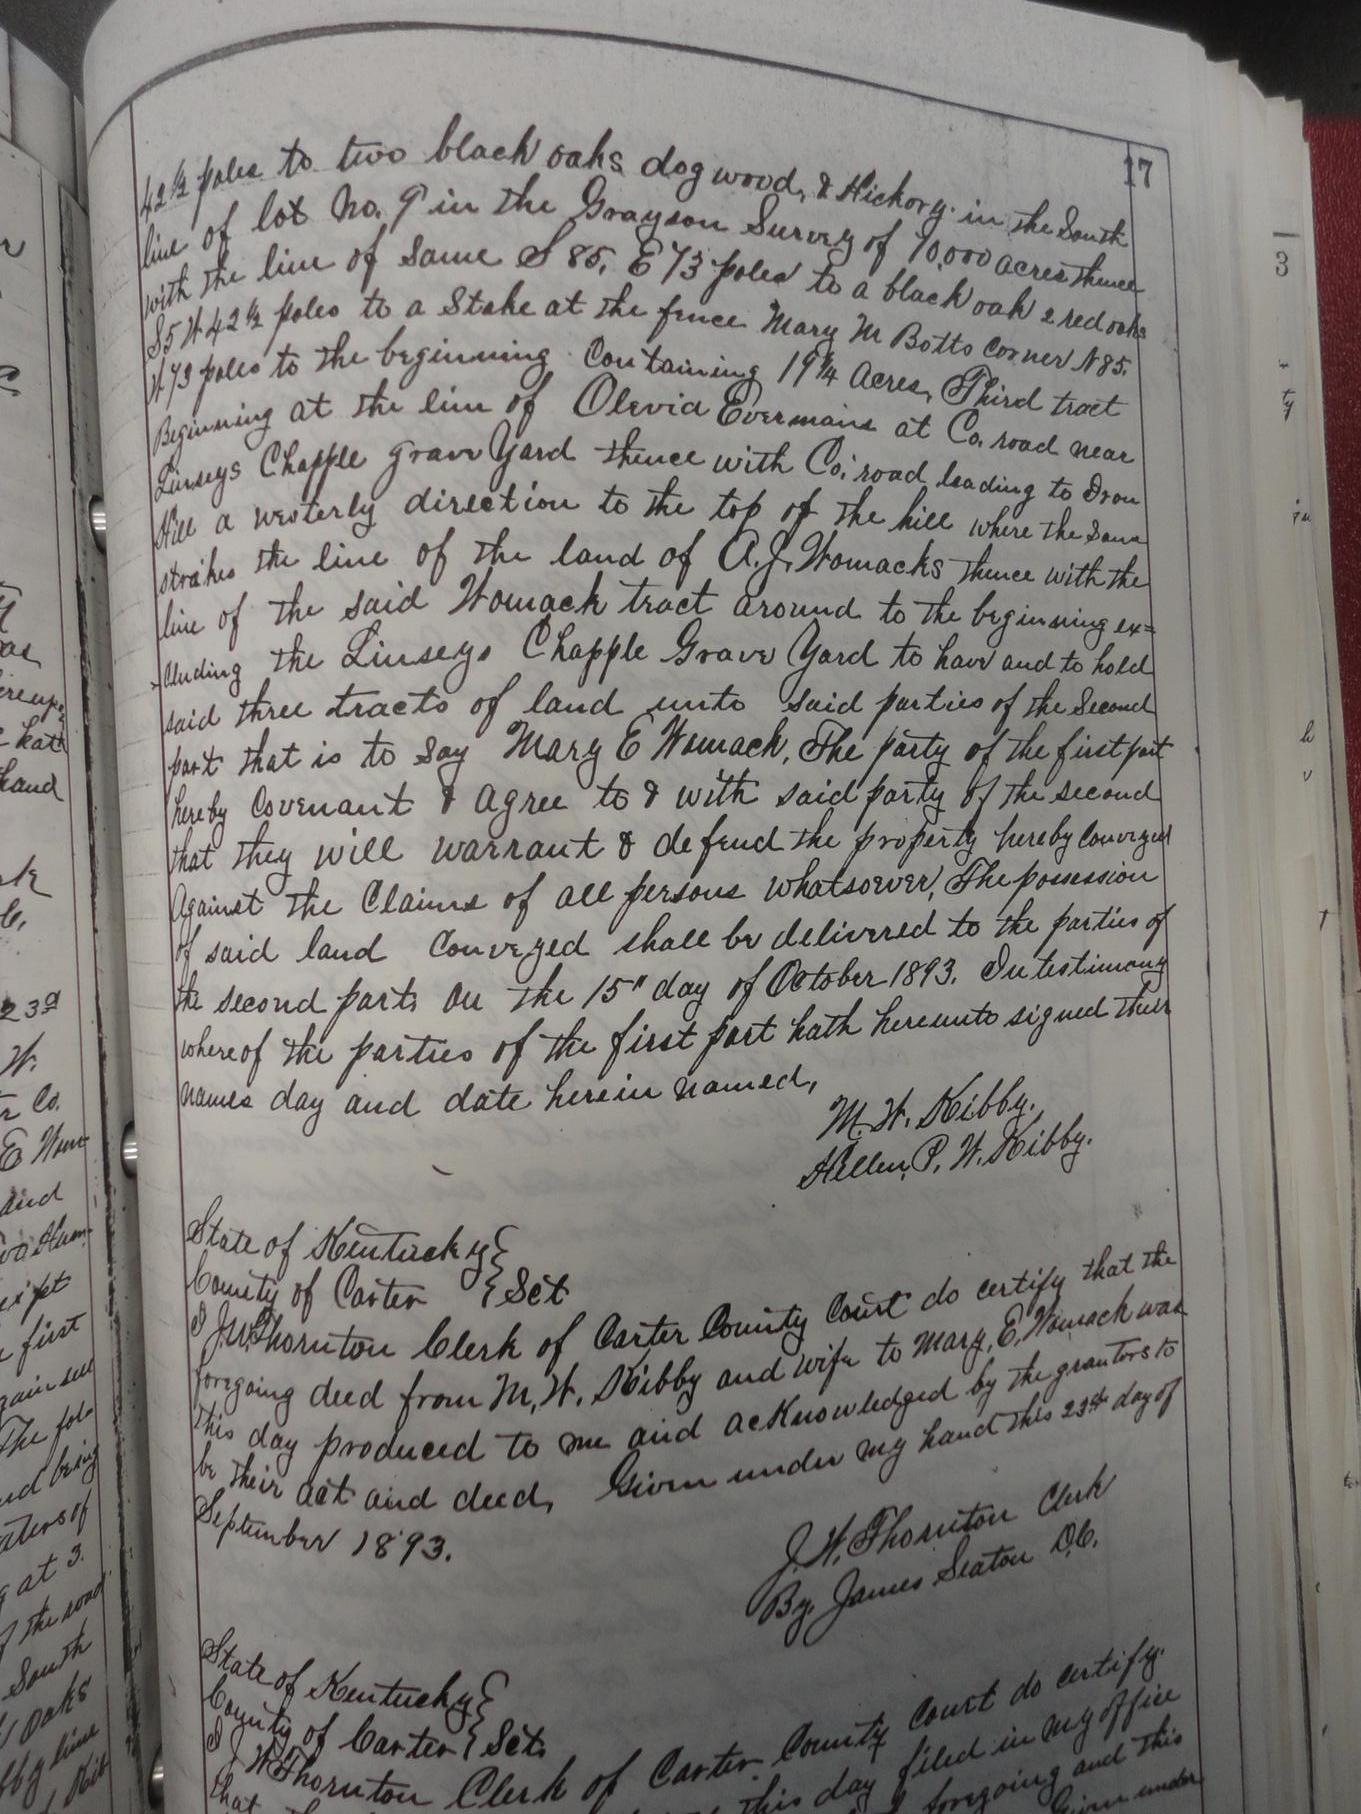 17
42 1/2 poles to two black oaks dog wood, & Hickory in the South
line of lot No. 9 in the Grayson Survey of 70,000 acres thence
with the line of same S 85, E 73 poles to a black oak 2 red oaks
S5 W 42 1/2 poles to a Stake at the fence Mary M Botts Corner N 85.
W. 73 poles to the beginning Containing 19 1/4 Acres, Third tract
Beginning at the line of Olevia Evermans at Co. road near
Linseys Chapple grave Yard thence with Co. road leading to Iron
Hill a westerly direction to the top of the hill where the same
strikes the line of the land of A.J. Womacks thence with the
line of the said Womack tract around to the beginning ex=
cluding the Linseys Chapple Grave Yard to have and to hold
said three tracts of land unto said parties of the Second
part that is to say Mary E Womack, The party of the first part
hereby Covenant & agree to & with said party of the second
that they will warrant & defend the property hereby Conveyed
Against the Claims of all persons whatsoever, The possession
of said land Conveyed shall be delivered to the parties of
the second part on the 15" day of October 1893. In testimony
whereof the parties of the first part hath hereunto signed their
names day and date herein named,
M. W. Kibby.
Hellen P. W. Kibby.
State of Kentucky }
County of Carter } Sct
I J.W. Thornton Clerk of Carter County Court do certify that the
foregoing deed from M. W. Kibby and wife to Mary, E. Womack was
this day produced to me and acknowledged by the grantors to
be their act and deed, Given under my hand this 23rd day of
September 1893.
J. W. Thornton Clerk
By. James Seaton D.C.
State of Kentucky }
County of Carter } Sct.
I J W Thornton Clerk of Carter County Court do certify.
that this day filed in my office
foregoing and this
Given under
3
23d
W.
Co.
E Wom
and
first
The fol
and being
at 3.
of the road
South
oaks
line
hand